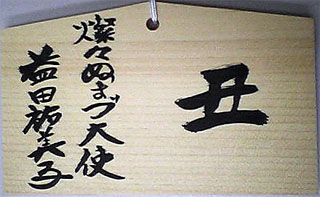 丑
燦々ぬまづ大使
益田祐美子